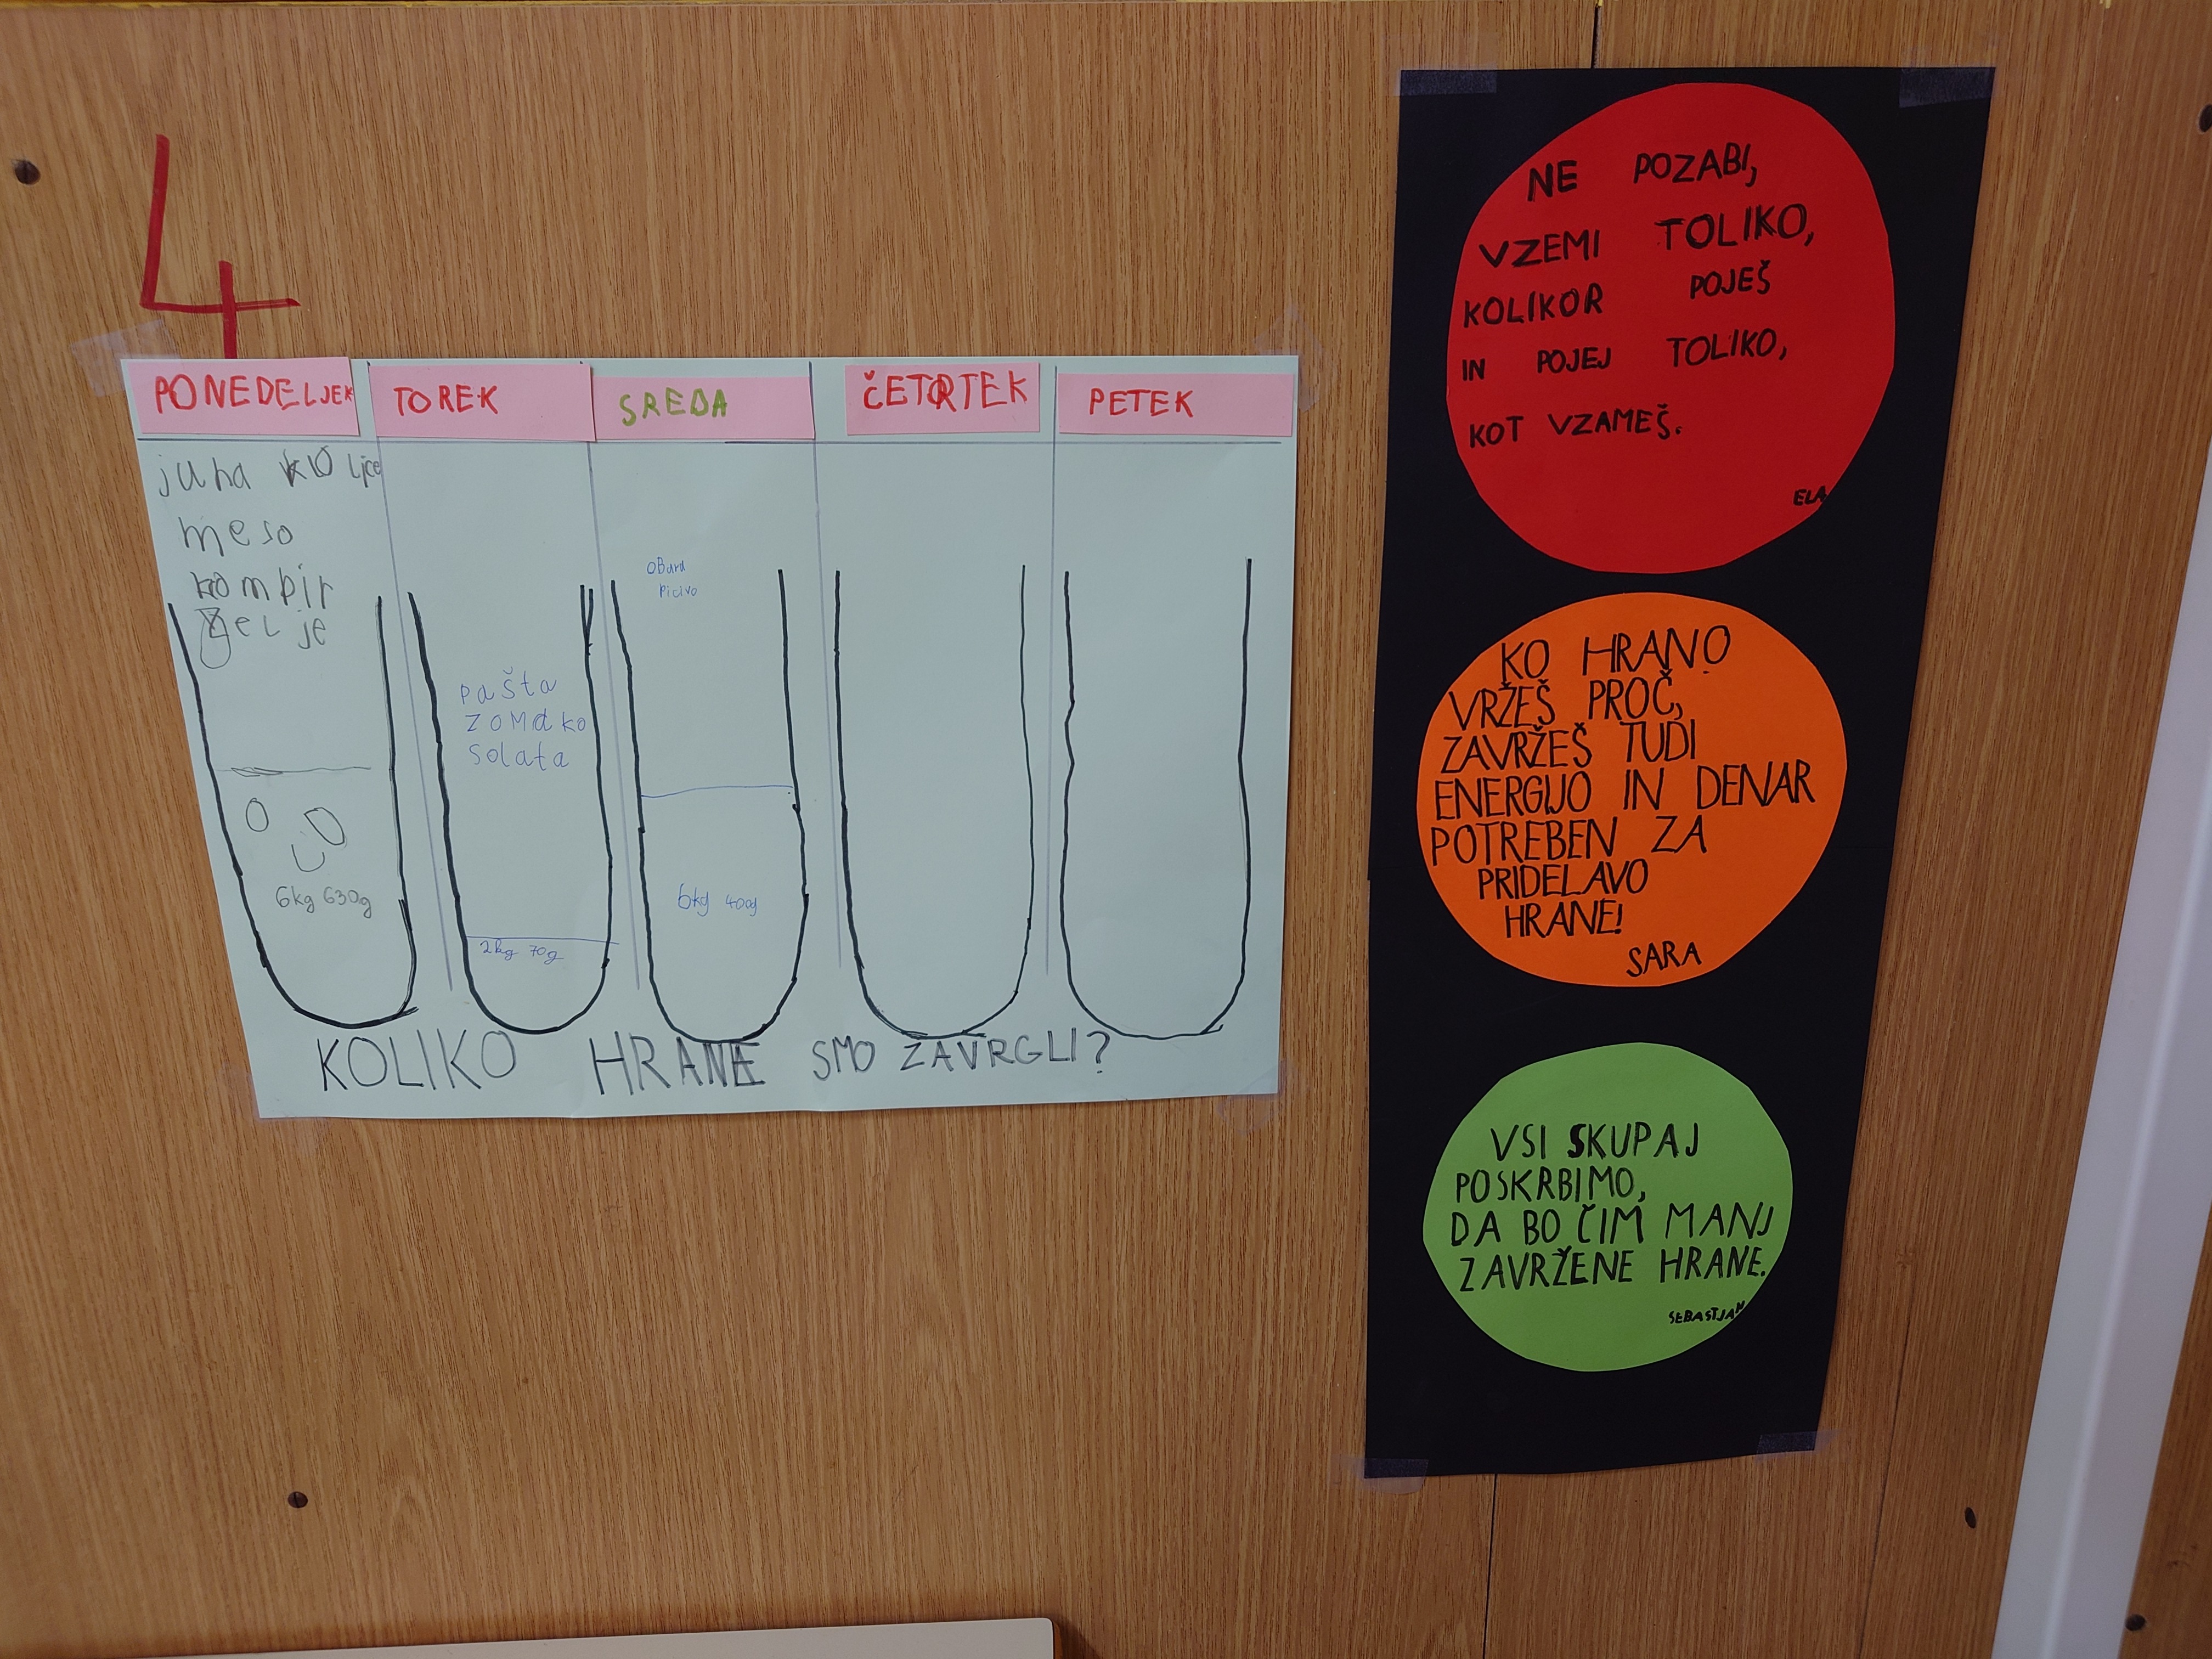 4
PONEDELJEK
TOREK
SREDA
ČETRTEK
PETEK
juha
meso
kompir
zelje
6kg 630g
pašta
zomako
solata
2kg 70g
obara
6kg 400g
KOLIKO HRANE SMO ZAVRGLI?
NE POZABI,
VZEMI TOLIKO,
KOLIKOR POJEŠ
IN POJEJ TOLIKO,
KOT VZAMEŠ.
ELA
KO HRANO
VRŽEŠ PROČ,
ZAVRŽEŠ TUDI
ENERGIJO IN DENAR
POTREBEN ZA
PRIDELAVO
HRANE!
SARA
VSI SKUPAJ
POSKRBIMO,
DA BO ČIM MANJ
ZAVRŽENE HRANE.
SEBASTJAN